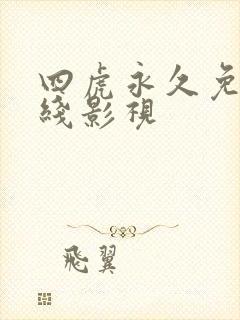 四虎永久免
綫影視
飛翼